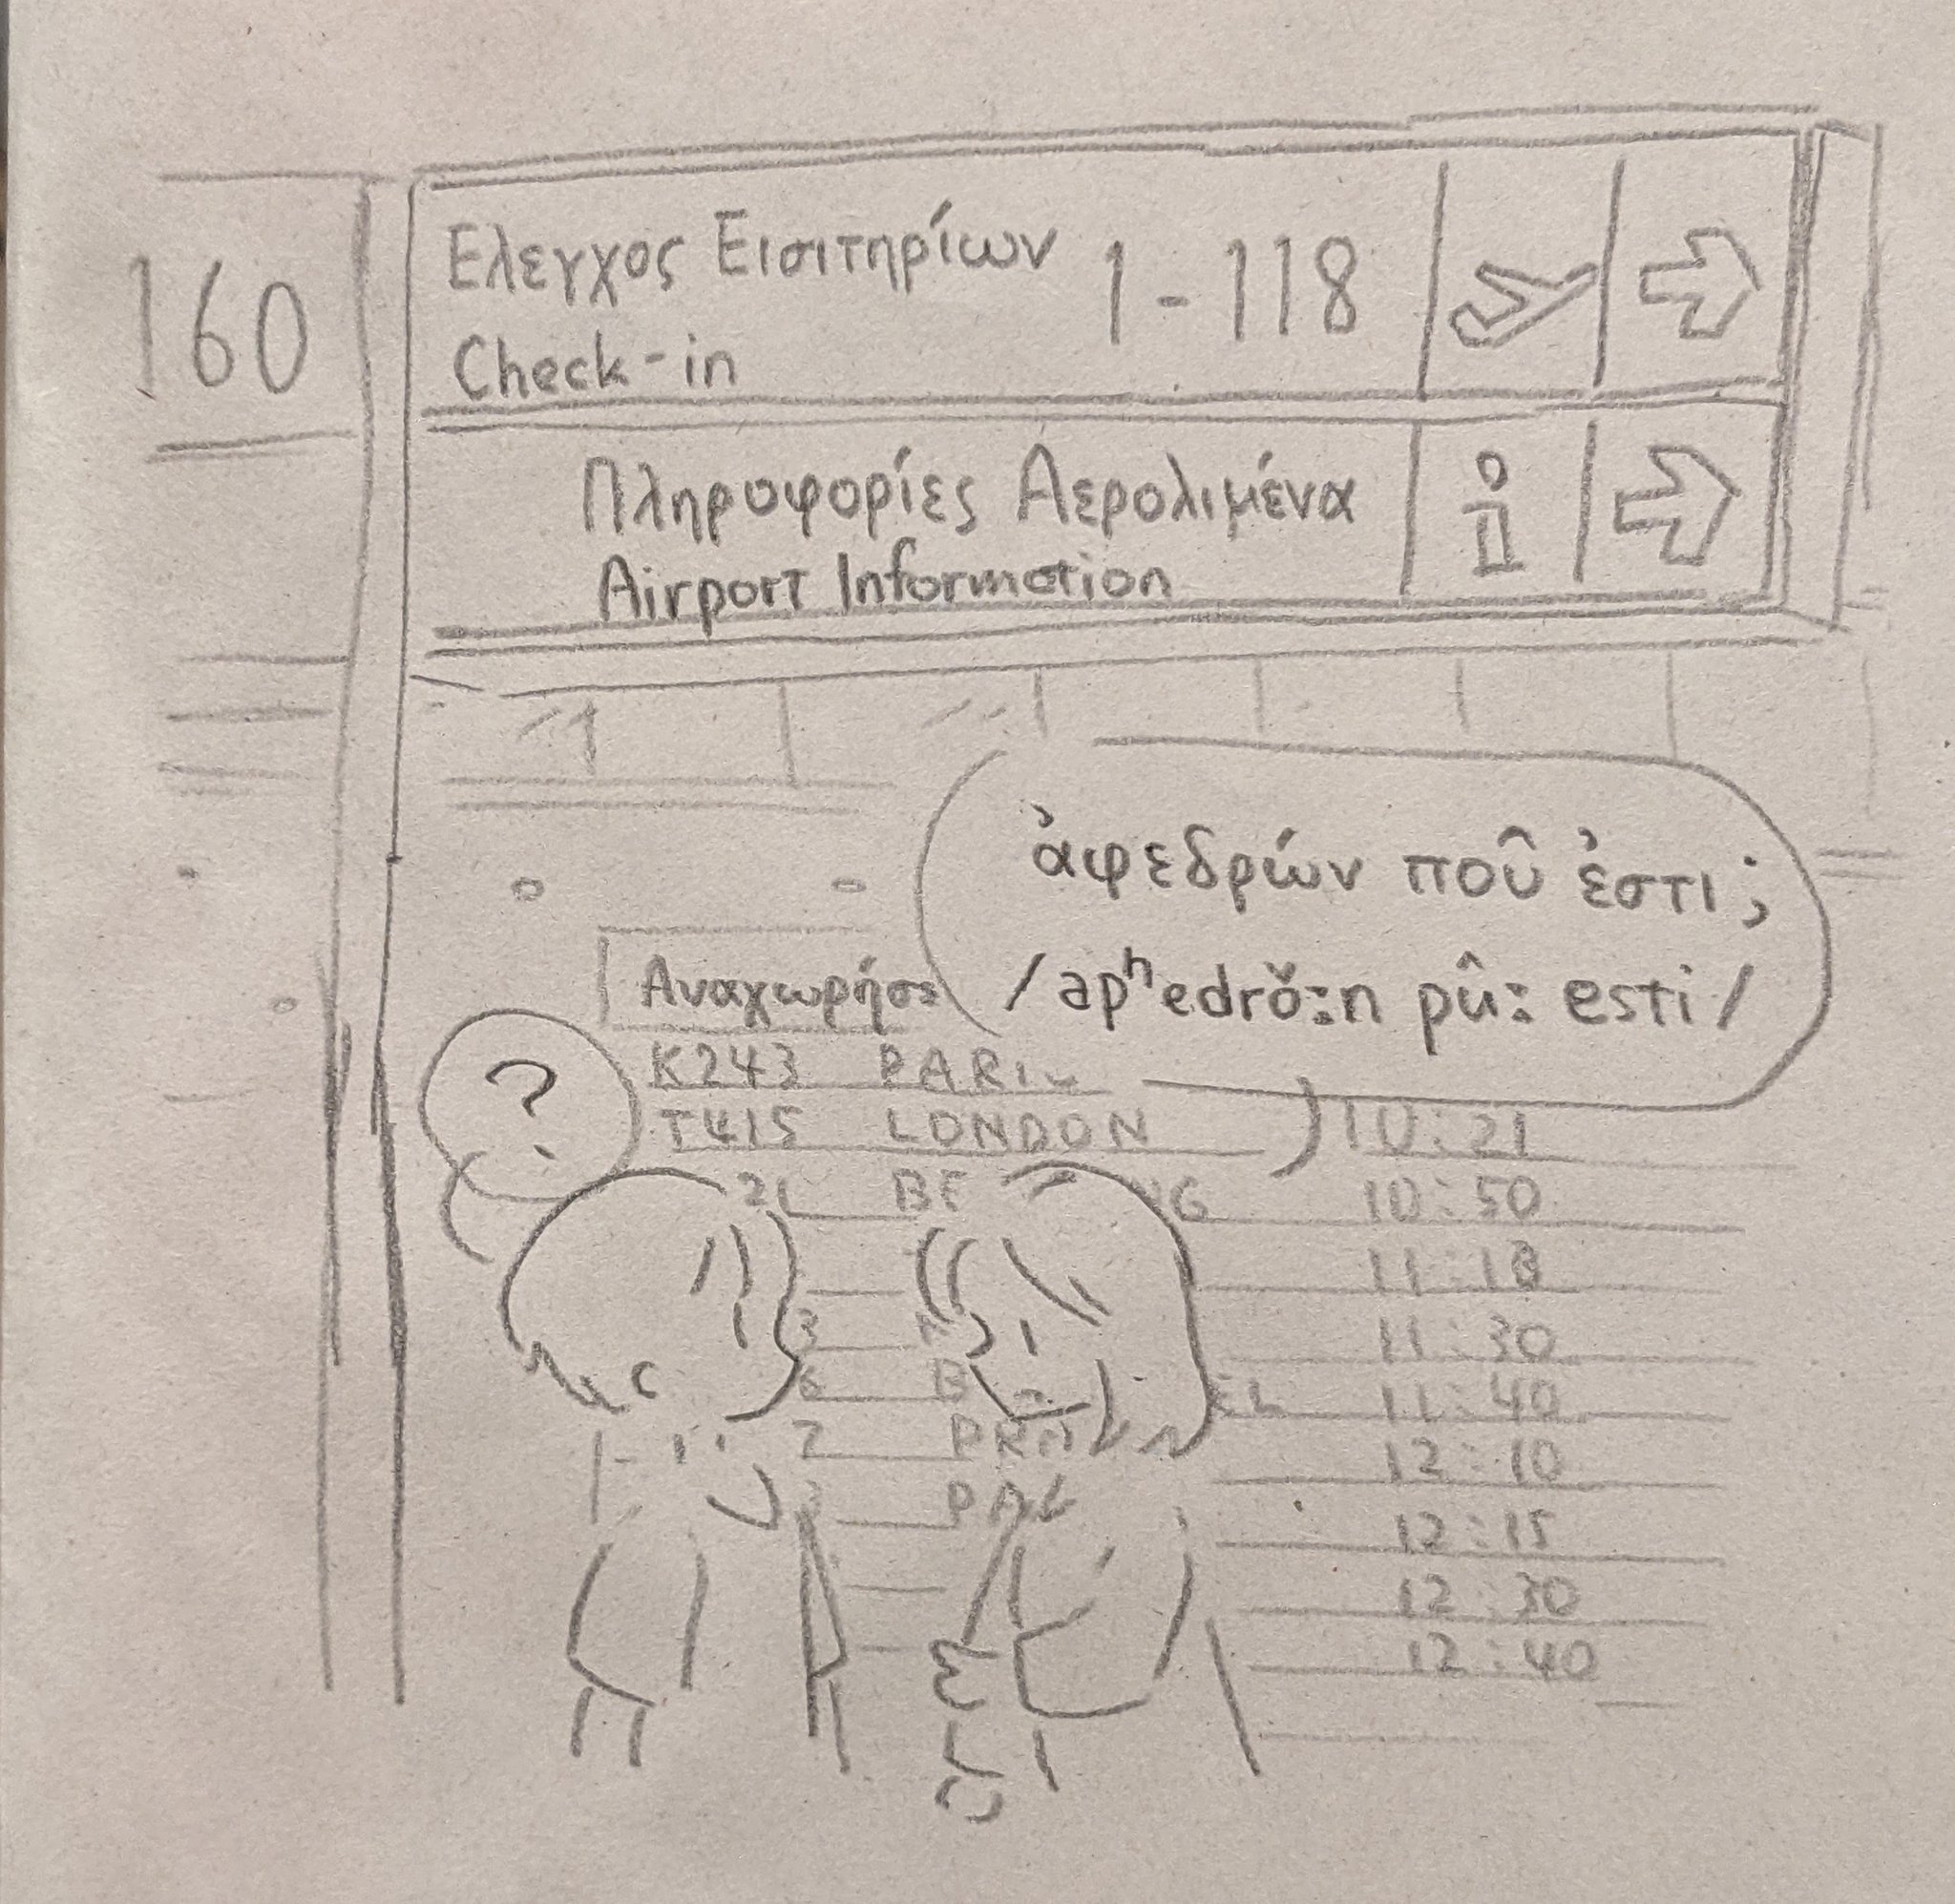 160
Ελεγχος Εισιτηρίων 1-118
Check-in
Πληροφορίες Αερολιμένα
Airport Information
ἀφεδρών ποῦ ἐστι;
/apʰedrǒːn pûː esti/
Αναχωρήσε
?
K243 PARIS
T415 LONDON 10:21
10:50
11:18
11:30
11:40
12:10
12:15
12:30
12:40